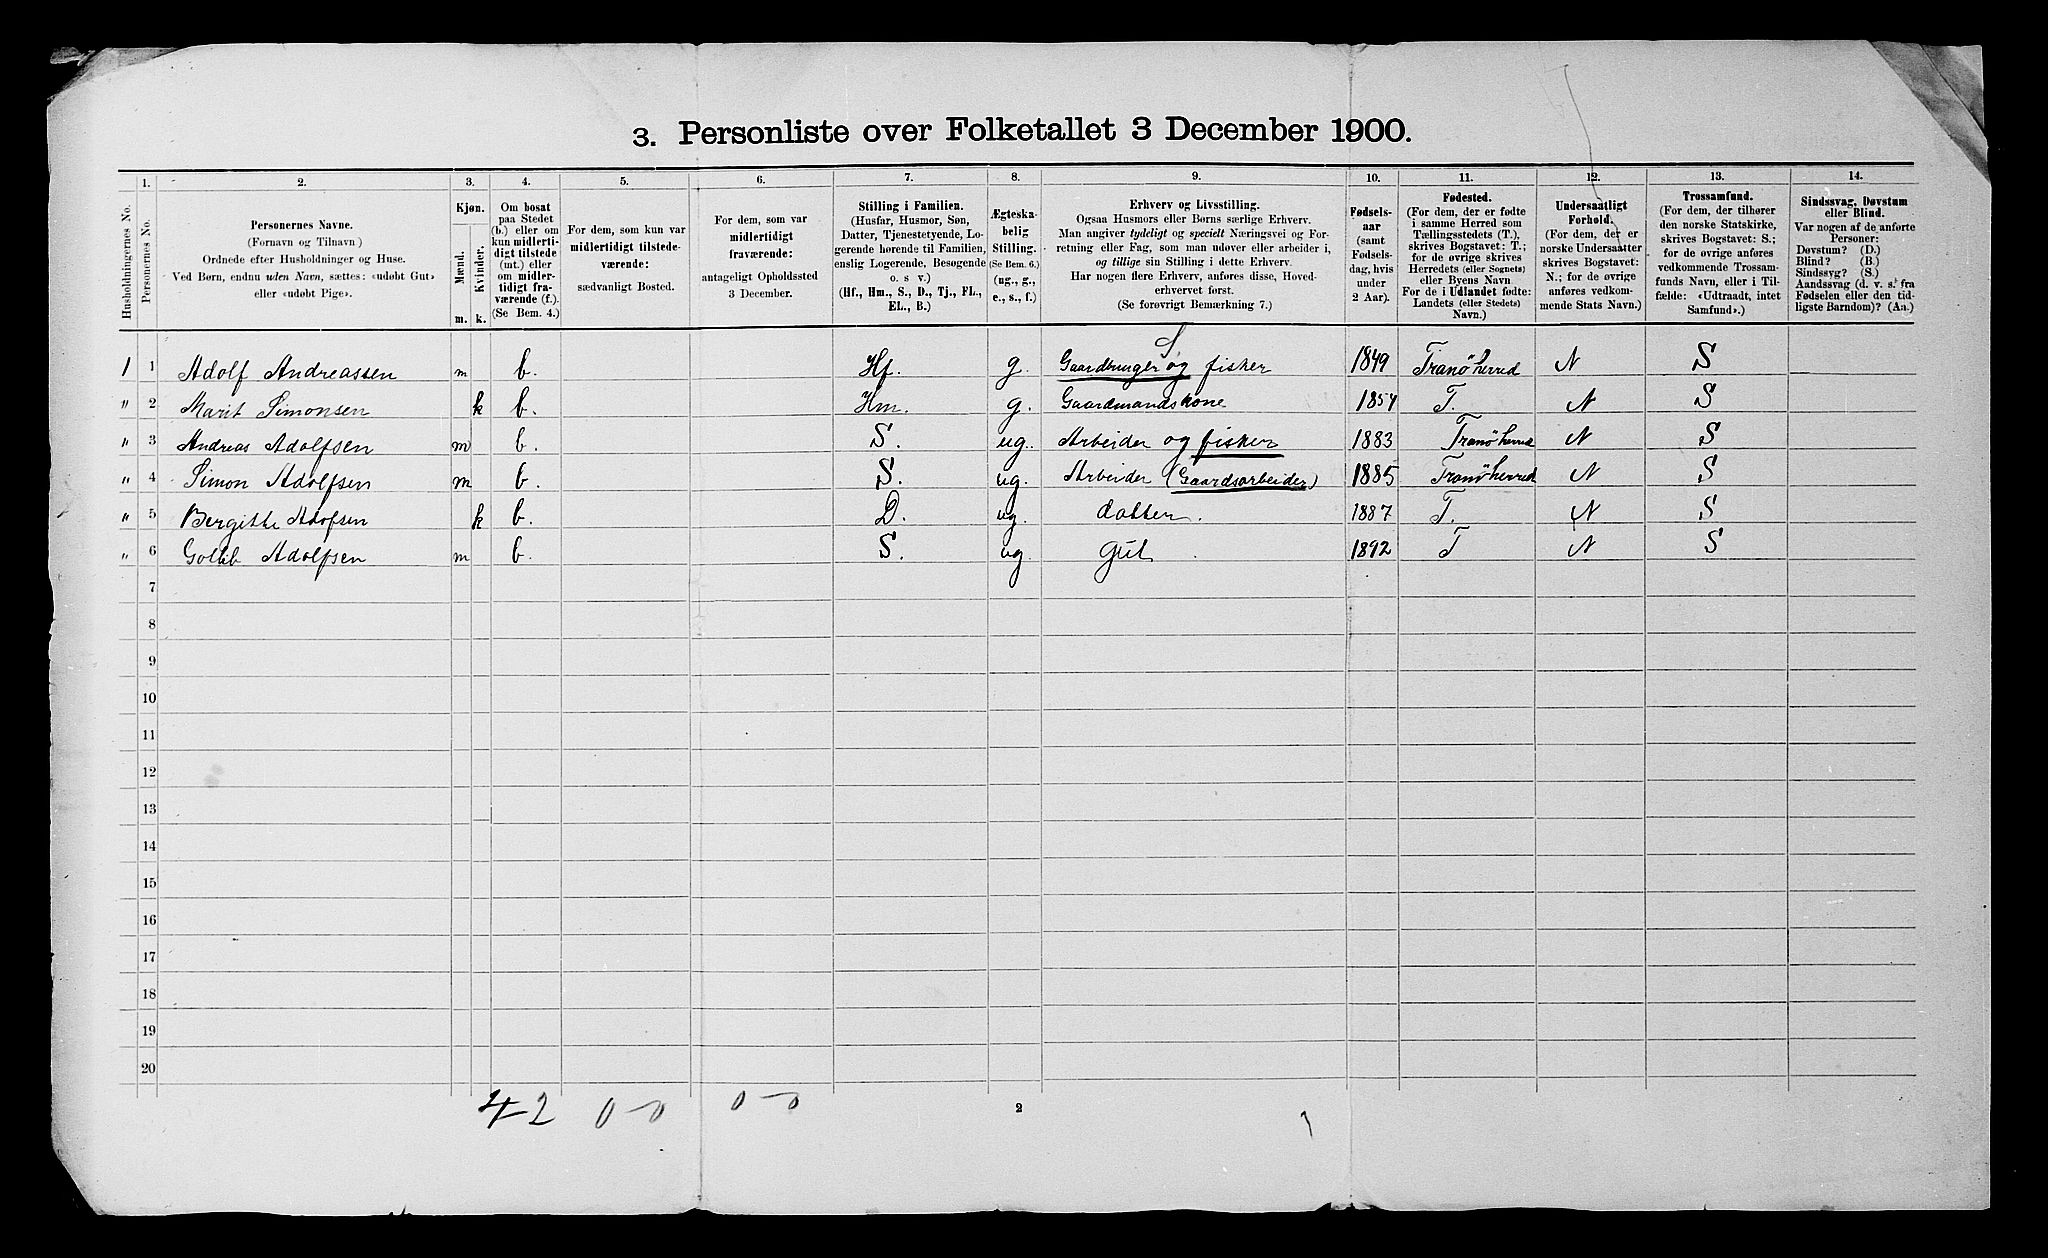 3. Personliste over Folketallet 3 December 1900.
1. 2. 3. 4. 5. 6. 7. 8. 9. 10. 11. 12. 13. 14.
Husholdningernes No.
Personernes No.
Personernes Navne.
(Fornavn og Tilnavn)
Ordnede efter Husholdninger og Huse.
Ved Børn, endnu uden Navn, sættes: «udøbt Gut»
eller «udøbt Pige».
Kjøn.
Mænd.
Kvinder.
m. k.
Om bosat
paa Stedet
(b.) eller om
kun midlerti-
digt tilstede
(mt.) eller
om midler-
tidigt fra-
værende (f.).
(Se Bem. 4.)
For dem, som kun var
midlertidigt tilstede-
værende:
sædvanligt Bosted.
For dem, som var
midlertidigt
fraværende:
antageligt Opholdssted
3 December.
Stilling i Familien.
(Husfar, Husmor, Søn,
Datter, Tjenestetyende, Lo-
gerende hørende til Familien,
enslig Logerende, Besøgende
o. s v.)
(Hf., Hm., S., D., Tj., FL.,
EL., B.)
Ægteska-
belig
Stilling.
(Se Bem. 6.)
(ug., g.,
e., s., f.)
Erhverv og Livsstilling.
Ogsaa Husmors eller Børns særlige Erhverv.
Man angiver tydeligt og specielt Næringsvei og For-
retning eller Fag, som man udøver eller arbeider i,
og tillige sin Stilling i dette Erhverv.
Har nogen flere Erhverv, anføres disse, Hoved-
erhvervet først.
(Se forøvrigt Bemærkning 7.)
Fødsels-
aar
(samt
Fødsels-
dag, hvis
under
2 Aar).
Fødested.
(For dem, der er fødte
i samme Herred som
Tællingsstedets (T.),
skrives Bogstavet: T.;
for de øvrige skrives
Herredets (eller Sognets)
eller Byens Navn
For de i Udlandet fødte:
Landets (eller Stedets)
Navn.)
Undersaatligt
Forhold.
(For dem, der er
norske Undersaatter
skrives Bogstavet:
N.; for de øvrige
anføres vedkom-
mende Stats Navn.)
Trossamfund.
(For dem, der tilhører
den norske Statskirke,
skrives Bogstavet: S.;
for de øvrige anføres
vedkommende Trossam-
funds Navn, eller i Til-
fælde: «Udtraadt, intet
Samfund».)
Sindssvag, Døvstum
eller Blind.
Var nogen af de anførte
Personer:
Døvstum? (D.)
Blind? (B.)
Sindssyg? (S.)
Aandssvag (d. v. s. fra
Fødselen eller den tid-
ligste Barndom)? (Aa.)
S
1 1 Adolf Andreassen m b. Hf. g. Gaardbruger og fisker 1849 Tranöherred N S
" 2 Marit Simonsen k b. Hm. g. Gaardmandskone 1854 T. N S
" 3 Andreas Adolfsen m b. S. ug. Arbeider og fisker 1883 Tranöherred N S
" 4 Simon Adolfsen m b. S. ug. Arbeider (Gaardsarbeider) 1885 Tranöherred N S
" 5 Bergitte Adofsen k b. D. ug. datter. 1887 T. N S
" 6 Gotlib Adolfsen m b. S. ug. Gut 1892 T N S
7
8
9
10
11
12
13
14
15
16
17
18
19
20
4-2 0-0 0-0
2